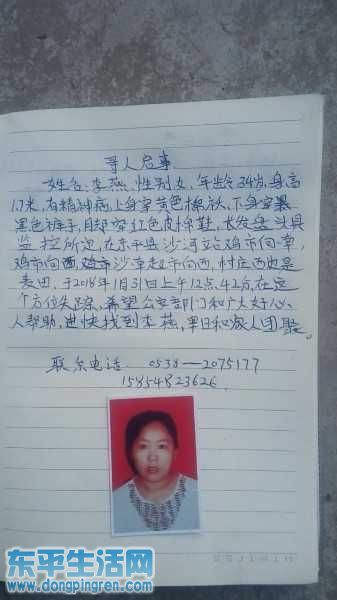 寻人启事
姓名:李燕,性别女,年龄34岁,身高
1.7米,有精神病,上身穿黄色棉袄,下身穿
黑色裤子,脚穿红色皮棉鞋,长发,
监控所迫,在东平县沙河站鸡市向
鸡市向西,鸡市沙车超市向西,村庄西边是
麦田,于2016年1月31日上午12点42分,在这
个方位失踪,希望公安部门和广大好心
人帮助,进快找到李燕,早日和家人团聚
联系电话 0538—2075177
15854823626
东平生活网
www.dongpingren.com